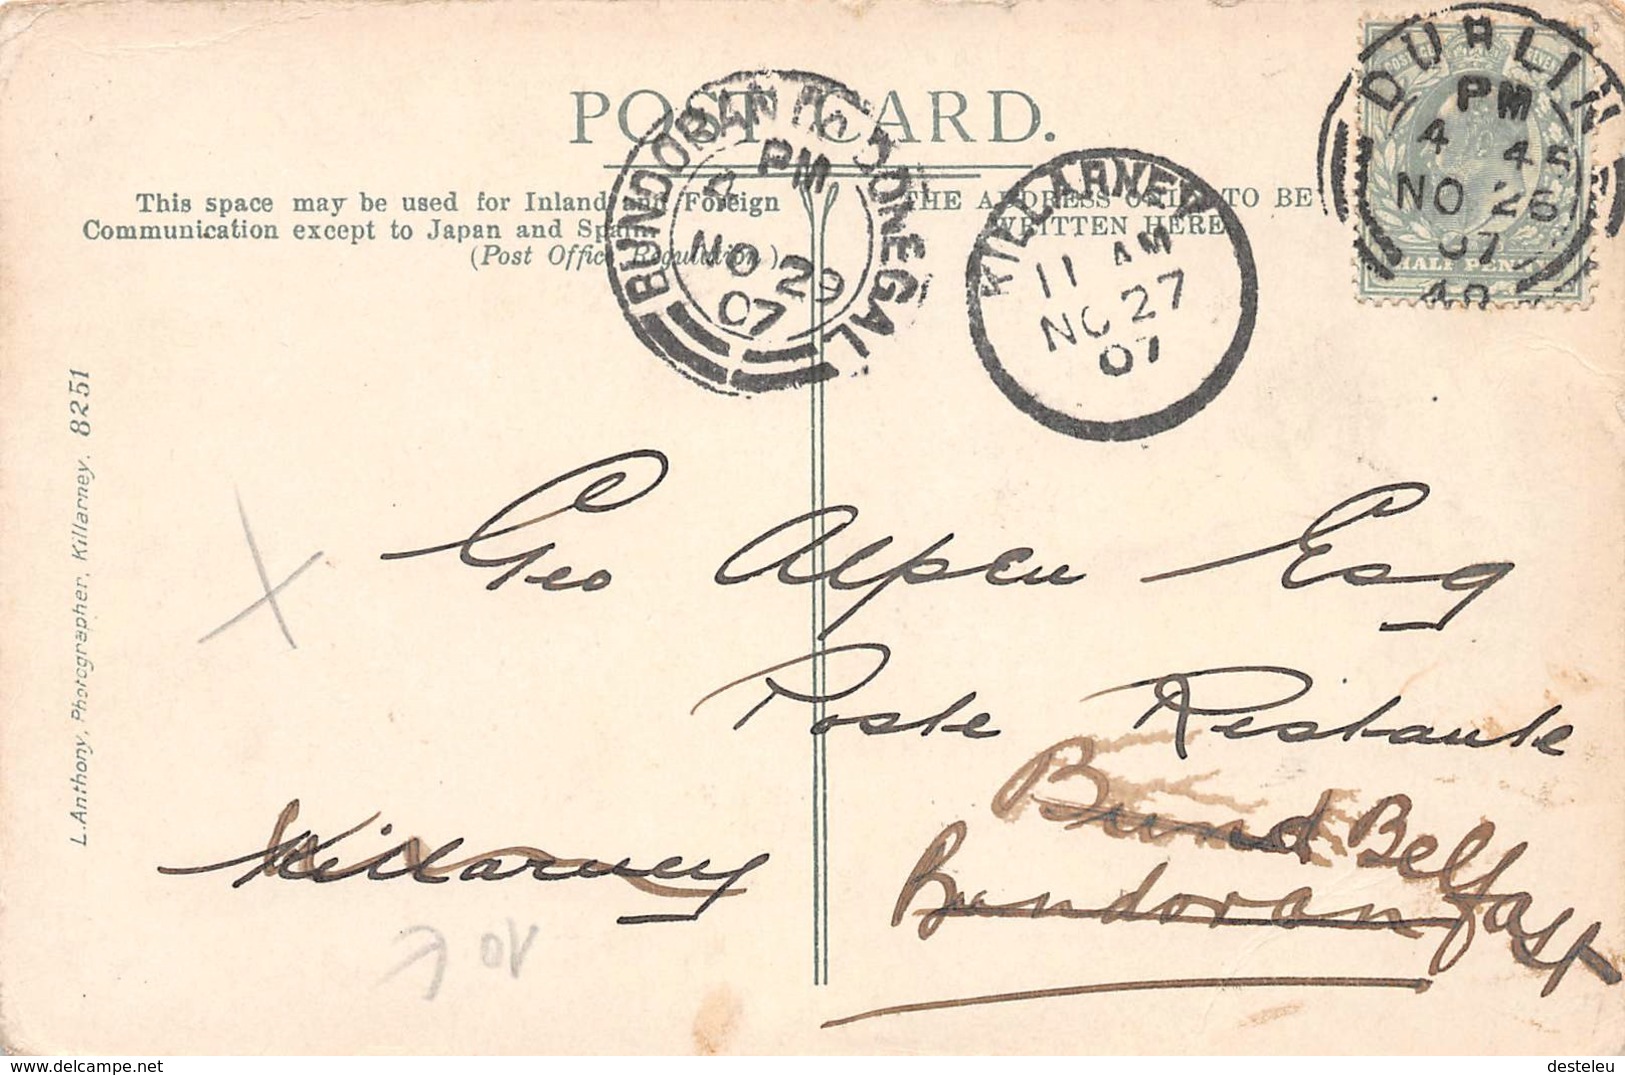 POST CARD.
This space may be used for Inland and Foreign
Communication except to Japan and Spain
(Post Office Regulation)
THE ADDRESS ONLY TO BE
WRITTEN HERE
BUNDORAN CO DONEGAL
PM
NO 29
07
KILLARNEY
11 AM
NO 27
07
DUBLIN
PM
4 45
NO 26
07
HALF PENNY
L. Anthony, Photographer, Killarney. 8251
Geo Alpen Esq
Poste Restante
Killarney
Bund Belfast
Bundoran
delcampe.net
desteleu